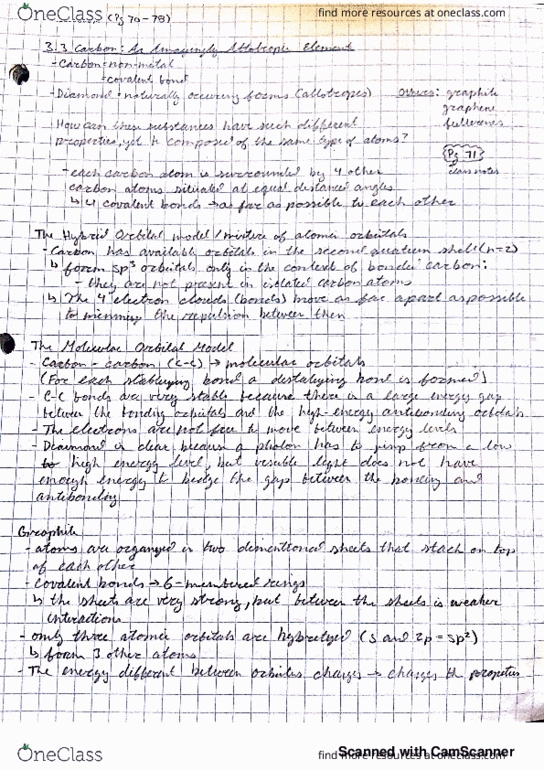 OneClass (Pg 70-78) find more resources at oneclass.com
3.3 Carbon: An Amazingly Allotropic Element
- Carbon = non-metal
= covalent bond
- Diamond = naturally occuring forms (allotropes) others: graphite
graphene
fullerenes
How can these substances have such different
properties, yet be composed of the same type of atoms?
Pg 71
class notes
- each carbon atom is surrounded by 4 other
carbon atoms situated at equal distanced angles
↳ 4 covalent bonds → as far as possible to each other
The Hybrid Orbital model / mixture of atomic orbitals
- Carbon has available orbitals in the second quantum shell (n=2)
↳ form sp³ orbitals only in the context of bonded carbon:
- they are not present in isolated carbon atoms
↳ The 4 electron clouds (bonds) move as far apart as possible
to the repulsion between them
The Molecular Orbital Model
- Carbon - carbon (C-C) → molecular orbitals
(For each bond a bond is formed)
- C-C bonds are very stable because there is a large energy gap
between the bonding orbitals and the high-energy antibonding orbitals
- The electrons are not free to move between energy levels
- Diamond is clear because a photon has to jump from a low
to high energy level, but visible light does not have
enough energy to the gap between the bonding and
antibonding
Graphite
- atoms are organized in two sheets that stack on top
of each other
- Covalent bonds → 6-membered rings
↳ the sheets are very strong, but between the sheets is weaker
interactions
- only three atomic orbitals are (s and 2p = sp²)
↳ form 3 other atoms
- The energy different between orbitals changes → changes the properties
OneClass find more resources at oneclass.com
Scanned with CamScanner